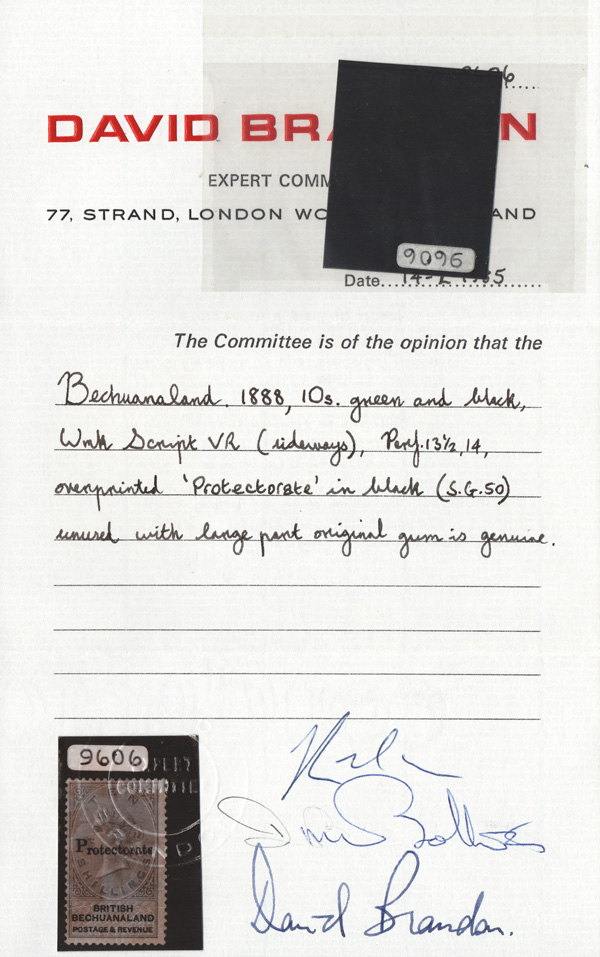 DAVID BR N
EXPERT COMM
77, STRAND, LONDON WC AND
9096
Date 14-2 1985
The Committee is of the opinion that the
Bechuanaland. 1888, 10s. green and black,
Wmk Script VR (sideways), Perf. 13½, 14,
overprinted 'Protectorate' in black (S.G.50)
unused with large part original gum is genuine.
9606
EXPERT
COMMITTEE
Protectorate
SHILLINGS
BRITISH
BECHUANALAND
POSTAGE & REVENUE
David Brandon.